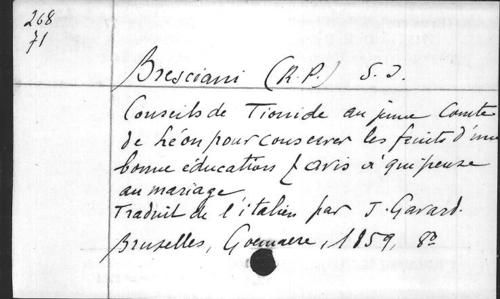 268
71
Bresciani (R.P.) S.J.
Conseils de Tionide au jeune Comte
de Léon pour conserver les fruits d'une
bonne éducation & avis à qui pense
au mariage
Traduit de l'italien par J. Gavard.
Bruxelles, Goemaere, 1859, 8º